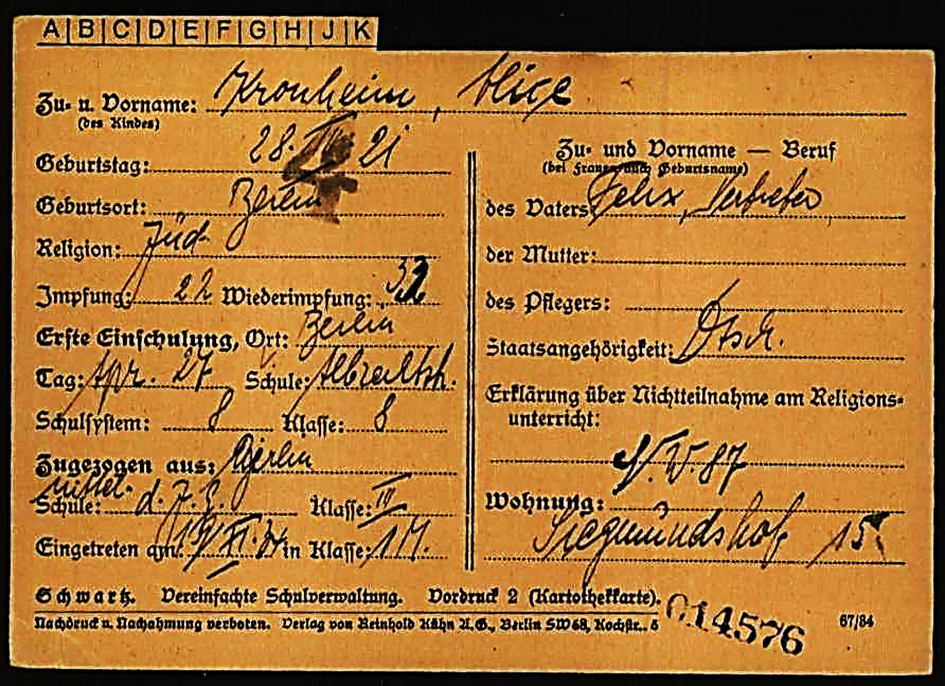 A B C D E F G H J K
Zu- u. Vorname: Kronheim, Alice
(des Kindes)
Geburtstag: 28. 21
Geburtsort: Berlin
Religion: Jüd.
Impfung: 22 Wiederimpfung: 32
Erste Einschulung, Ort: Berlin
Tag: Apr. 27 Schule: Albrechtsh.
Schulsystem: 8 Klasse: 8
Zugezogen aus: Berlin
Mittel-
Schule: d. J. G. Klasse: IV
Eingetreten am: in Klasse:
Zu- und Vorname — Beruf
(bei Frauen auch Geburtsname)
des Vaters: Felix, Vertreter
der Mutter:
des Pflegers:
Staatsangehörigkeit: Dtsch.
Erklärung über Nichtteilnahme am Religions-
unterricht:
Wohnung:
Siegmundshof 15.
Schwartz. Vereinfachte Schulverwaltung. Vordruck 2 (Karthothekkarte).
Nachdruck u. Nachahmung verboten. Verlag von Reinhold Kühn A.G., Berlin SW68, Kochstr. 5
014576
67/34